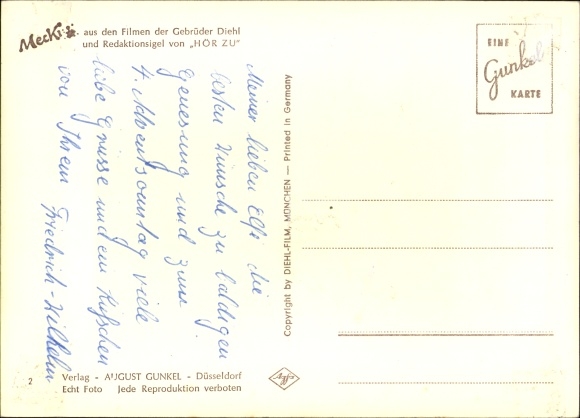 Mecki
aus den Filmen der Gebrüder Diehl
und Redaktionsigel von „HÖR ZU"
EINE
Gunkel
KARTE
Meiner lieben Elfi die
besten Wünsche zu baldigen
Genesung und zum
4. Adventsonntag viele
liebe Grüsse und ein Küßchen
von Ihrem Friedrich-Wilhelm
Copyright by DIEHL-FILM, MÜNCHEN — Printed in Germany
2
Verlag - AUGUST GUNKEL - Düsseldorf
Echt Foto Jede Reproduktion verboten
Agfa